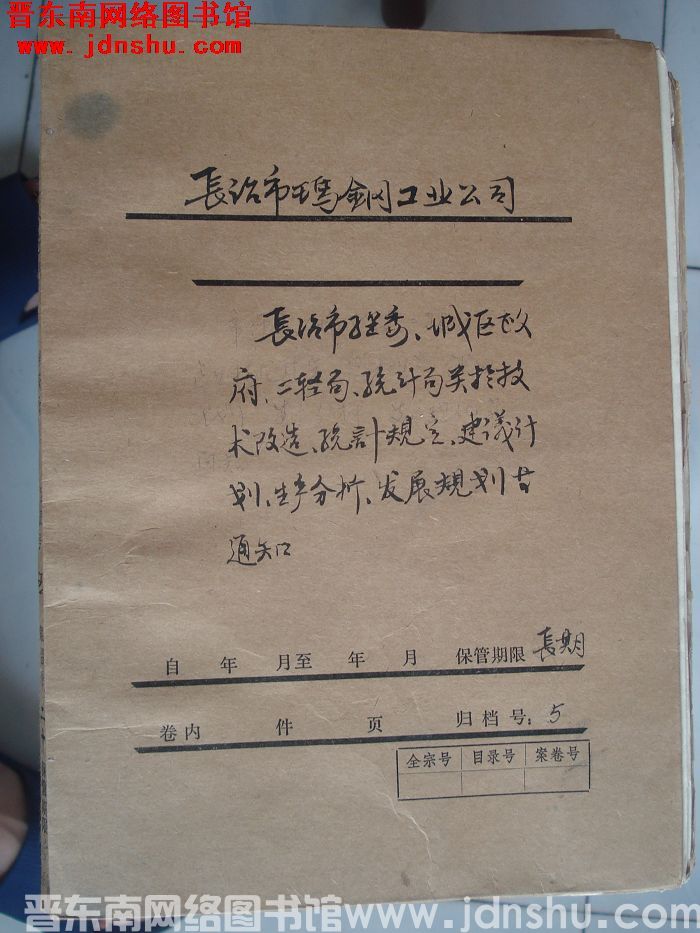 晋东南网络图书馆
www.jdnshu.com
長治市瑪鋼工业公司
長治市经委、城区政
府、二轻局、统计局关於技
术改造、统計規定、建议计
划、生产分析、发展規划廿
通知
自 年 月至 年 月 保管期限 長期
卷内 件 页 归档号:5
全宗号 目录号 案卷号
晋东南网络图书馆www.jdnshu.com